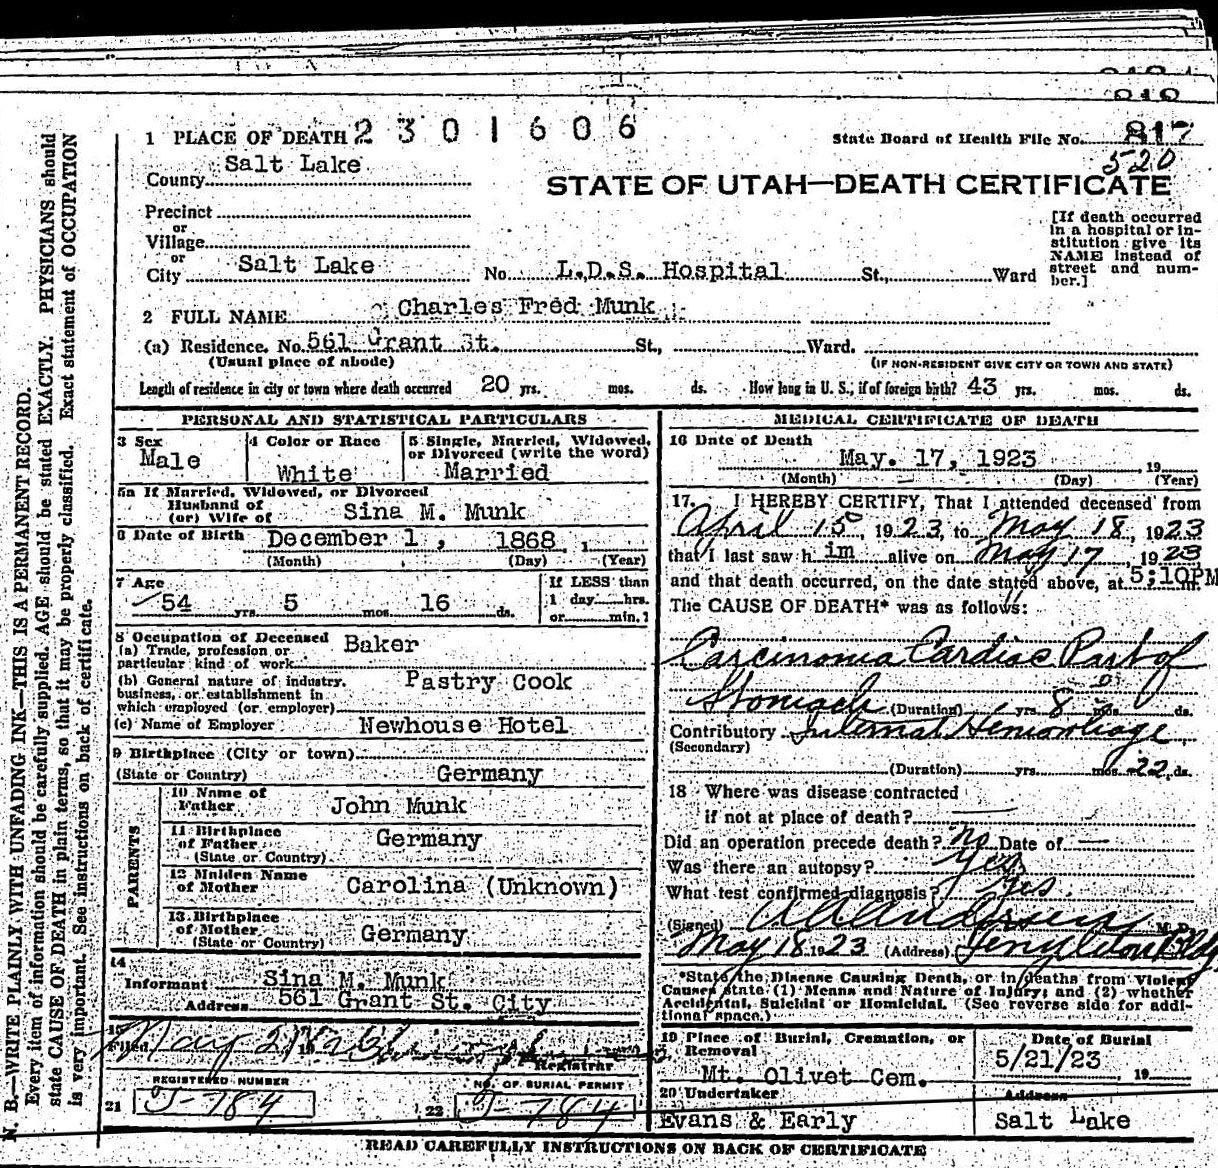 818
1 PLACE OF DEATH 2301606
State Board of Health File No. 817
520
County Salt Lake
STATE OF UTAH—DEATH CERTIFICATE
Precinct
or
Village
or
City Salt Lake No. L.D.S. Hospital St., Ward
[If death occurred
in a hospital or in-
stitution give its
NAME instead of
street and num-
ber.]
2 FULL NAME Charles Fred Munk
(a) Residence. No. 561 Grant St. St., Ward.
(Usual place of abode) (IF NON-RESIDENT GIVE CITY OR TOWN AND STATE)
Length of residence in city or town where death occurred 20 yrs. mos. ds. How long in U. S., if of foreign birth? 43 yrs. mos. ds.
PERSONAL AND STATISTICAL PARTICULARS
3 Sex
Male
4 Color or Race
White
5 Single, Married, Widowed,
or Divorced (write the word)
Married
5a If Married, Widowed, or Divorced
Husband of
(or) Wife of Sina M. Munk
6 Date of Birth December 1, 1868
(Month) (Day) (Year)
7 Age
54 yrs. 5 mos. 16 ds.
If LESS than
1 day hrs.
or min.]
8 Occupation of Deceased
(a) Trade, profession or
particular kind of work Baker
(b) General nature of industry,
business, or establishment in
which employed (or employer) Pastry Cook
(c) Name of Employer Newhouse Hotel
9 Birthplace (City or town)
(State or Country) Germany
PARENTS
10 Name of
Father John Munk
11 Birthplace
of Father Germany
(State or Country)
12 Maiden Name
of Mother Carolina (Unknown)
13 Birthplace
of Mother Germany
(State or Country)
14
Informant Sina M. Munk
Address 561 Grant St. City
15
Filed May 21
Registrar
REGISTERED NUMBER
21 J-784
NO. OF BURIAL PERMIT
22 J-784
MEDICAL CERTIFICATE OF DEATH
16 Date of Death
May. 17, 1923, 19
(Month) (Day) (Year)
17. I HEREBY CERTIFY, That I attended deceased from
April 15, 1923, to May 18, 1923
that I last saw him alive on May 17, 1923
and that death occurred, on the date stated above, at 5:10PM m.
The CAUSE OF DEATH* was as follows:
Carcinonia Cardiac Part of
Stomach (Duration) yrs. 8 mos. ds.
Contributory Internal Hemorrhage
(Secondary)
(Duration) yrs. mos. 22 ds.
18 Where was disease contracted
if not at place of death?
Did an operation precede death? No Date of —
Was there an autopsy? Yes
What test confirmed diagnosis? Yes.
(Signed) M. D.
May 18 1923 (Address) Templeton Bldg
*State the Disease Causing Death, or in deaths from Violent
Causes state (1) Means and Nature of Injury; and (2) whether
Accidental, Suicidal or Homicidal. (See reverse side for addi-
tional space.)
19 Place of Burial, Cremation, or
Removal
Mt. Olivet Cem.
Date of Burial
5/21/23, 19
20 Undertaker
Evans & Early
Address
Salt Lake
READ CAREFULLY INSTRUCTIONS ON BACK OF CERTIFICATE
N. B.—WRITE PLAINLY WITH UNFADING INK—THIS IS A PERMANENT RECORD.
Every item of information should be carefully supplied. AGE should be stated EXACTLY. PHYSICIANS should
state CAUSE OF DEATH in plain terms, so that it may be properly classified. Exact statement of OCCUPATION
is very important. See instructions on back of certificate.